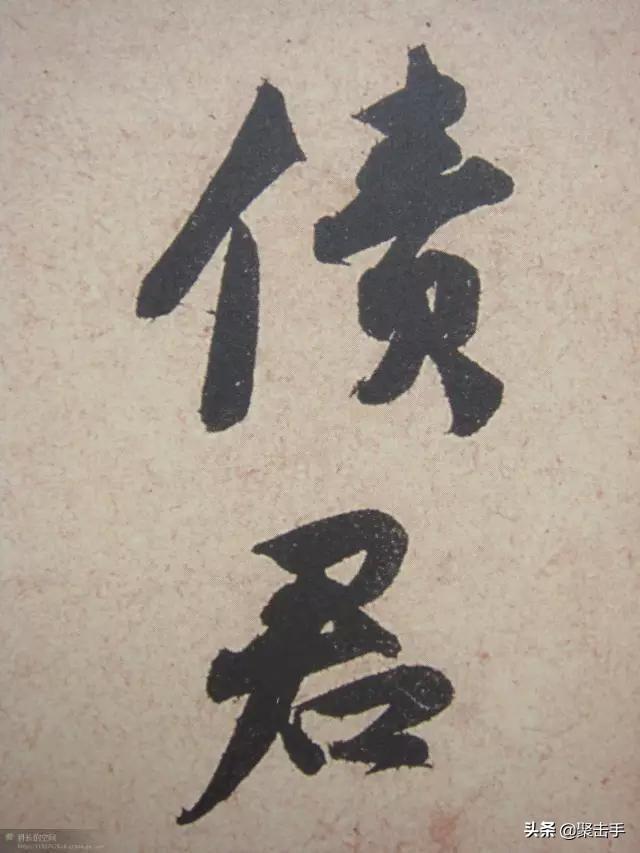 債
君
头条 @聚击手